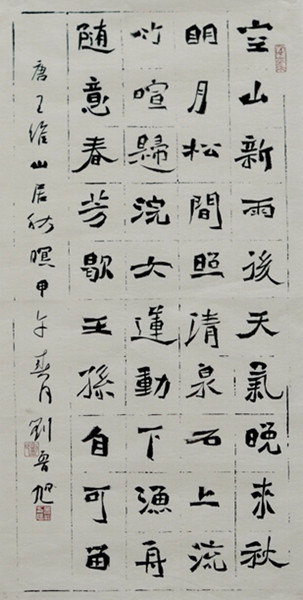 空山新雨後天氣晚來秋
明月松間照清泉石上流
竹喧歸浣女蓮動下漁舟
随意春芳歇王孫自可留
唐王維山居秋暝甲午春月劉魯旭